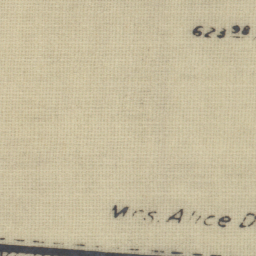 623 98
Mrs. Alice D